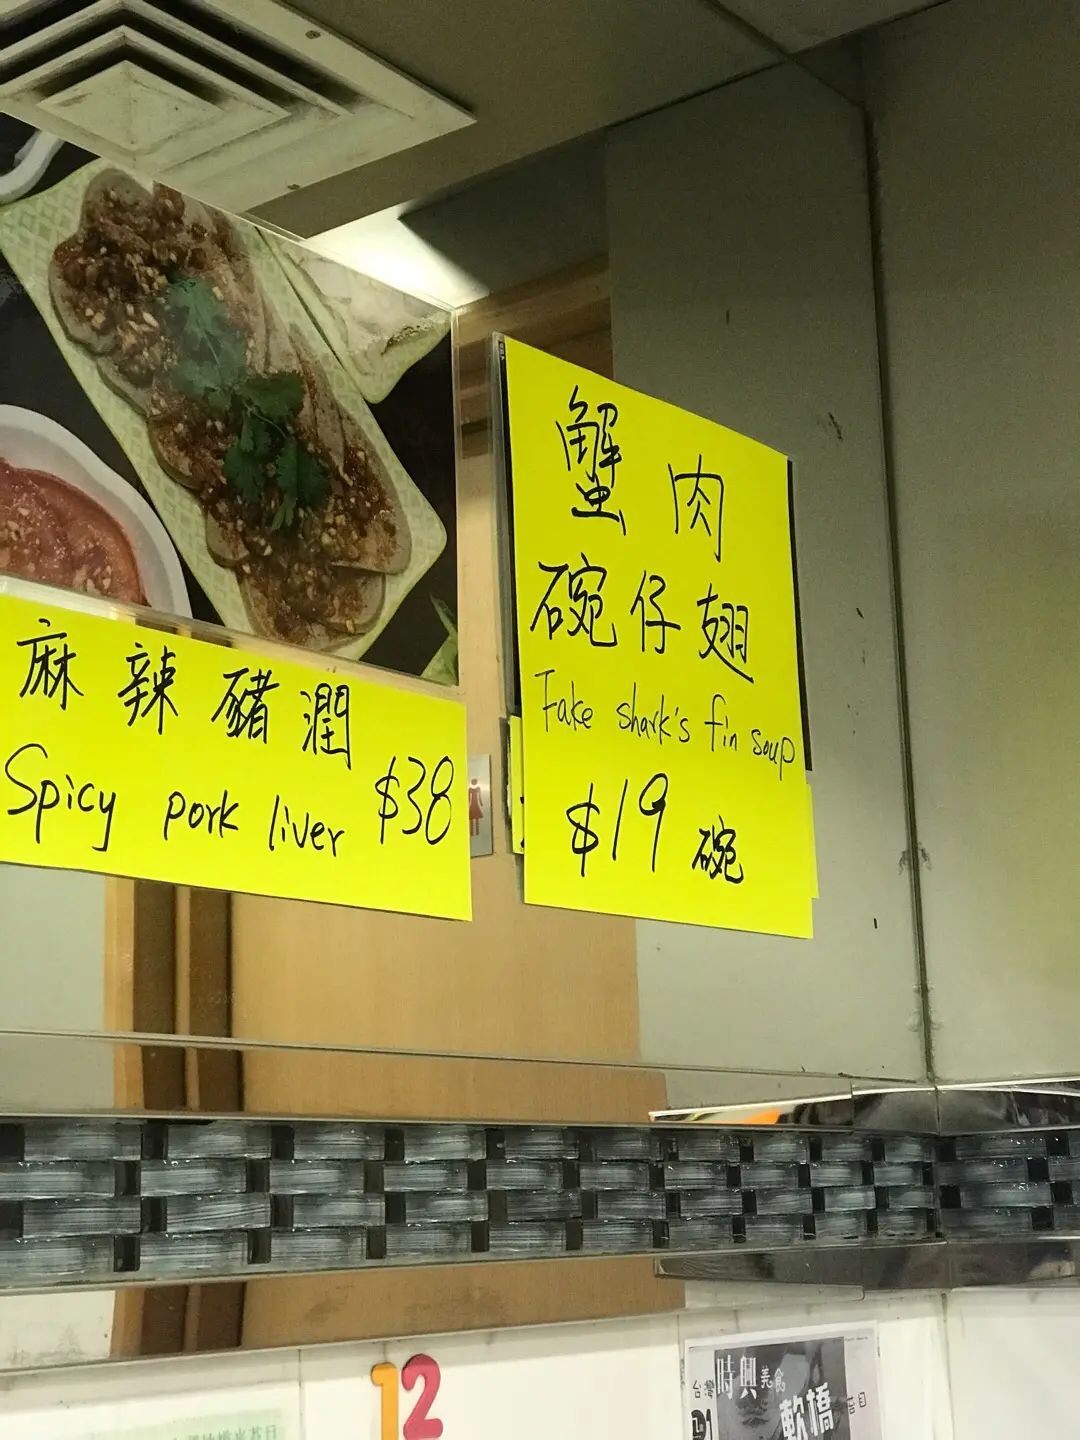 麻辣豬潤
Spicy pork liver $38
蟹肉
碗仔翅
Fake shark's fin soup
$19 碗
12
時興美食
台灣
軟橋